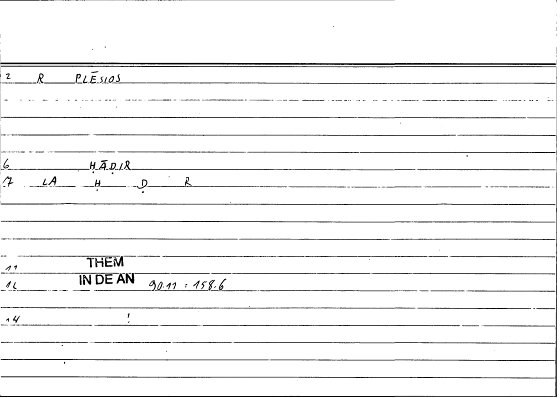 2 R PLĒSIOS
6 ḤĀḌIR
17 LA Ḥ Ḍ R
11 THEM
12 IN DE AN 90.11 : 158.6
14 !